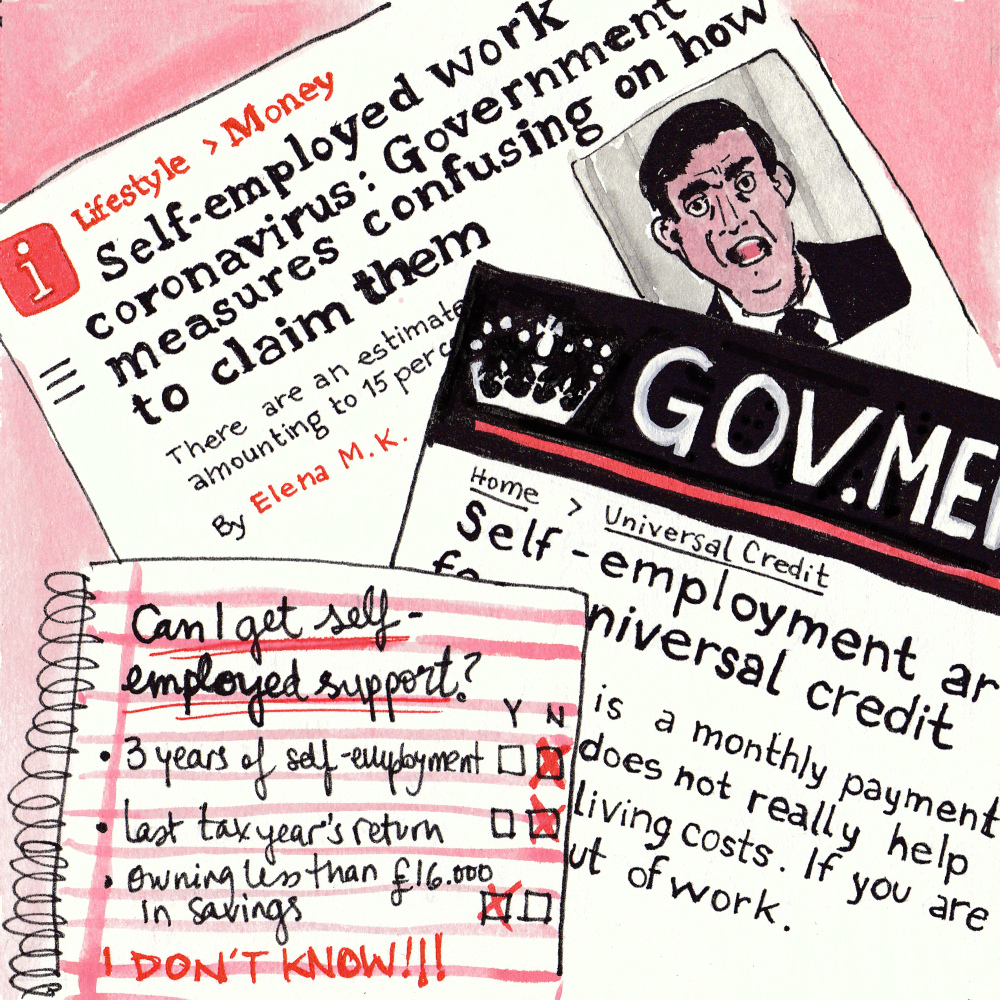 Lifestyle > Money
i
Self-employed work
coronavirus: Government
measures confusing on how
to claim them
There are an estimate
amounting to 15 perc
By Elena M. K.
GOV.ME
Home > Universal Credit
Self-employment ar
fo
niversal credit
is a monthly payment
does not really help
living costs. If you are
ut of work.
Can I get self-
employed support?
Y N
• 3 years of self-employment
• last tax year's return
• owning less than £16.000
in savings
I DON'T KNOW!!!